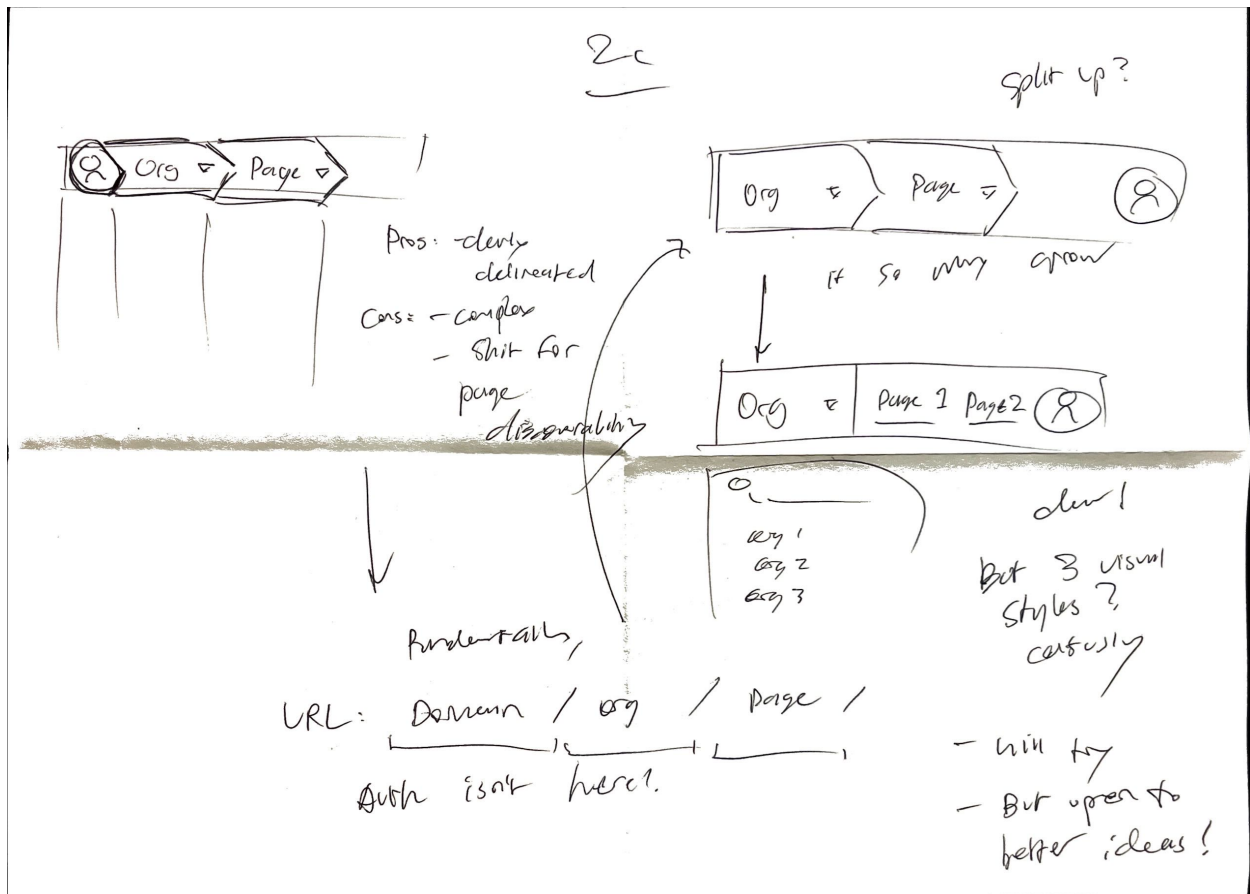 2c
Org
Page
Pros: - clearly
delineated
Cons: - complex
- Shit for
page
discoverability
Fundamentally,
URL: Domain / org / page /
Auth isn't here!
Split up?
Org
Page
If so why arrow
Org
Page 1 Page 2
org 1
org 2
org 3
clear!
But 3 visual
styles?
confusing
- will try
- But open to
better ideas!